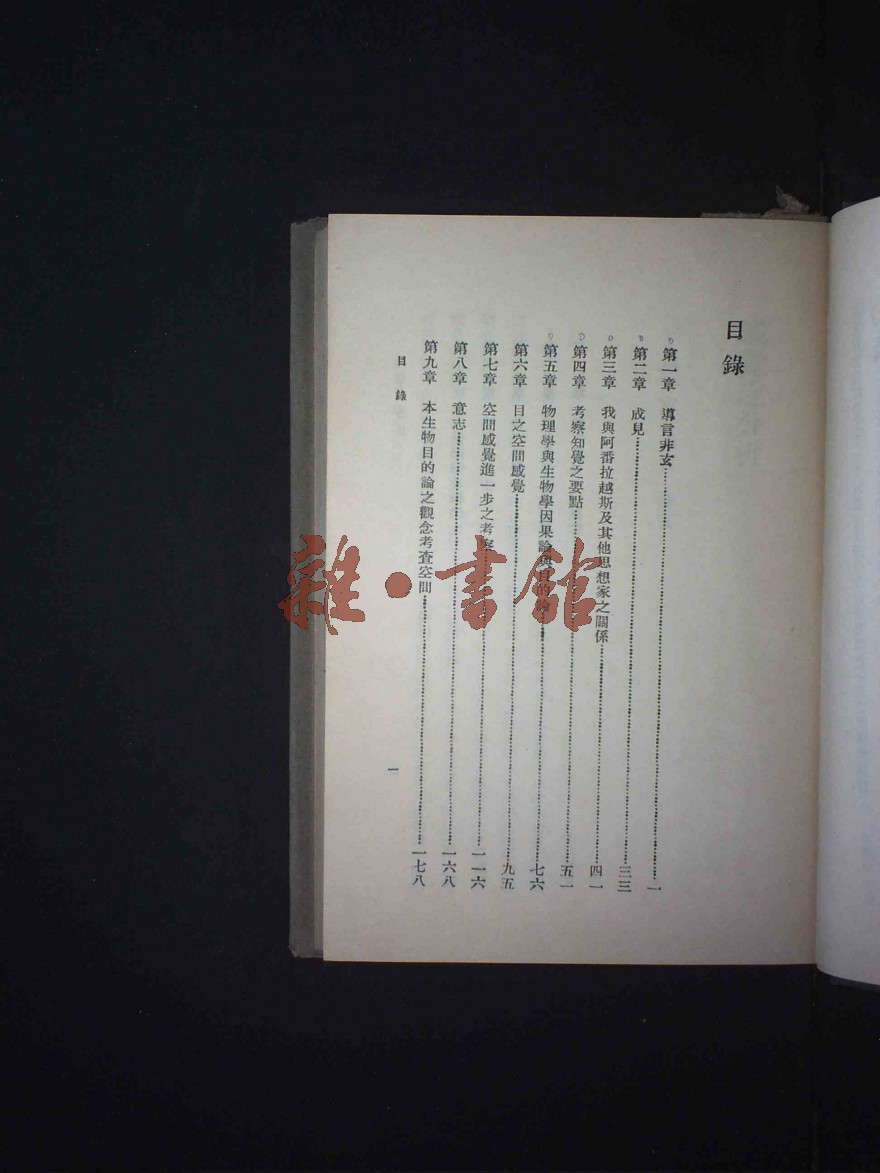 目錄
第一章 導言非玄……一
第二章 成見……三三
第三章 我與阿番拉越斯及其他思想家之關係……四一
第四章 考察知覺之要點……五一
第五章 物理學與生物學因果論與目的論……七六
第六章 目之空間感覺……九五
第七章 空間感覺進一步之考察……一一六
第八章 意志……一六八
第九章 本生物目的論之觀念考查空間……一七八
目錄
一
雜·書館